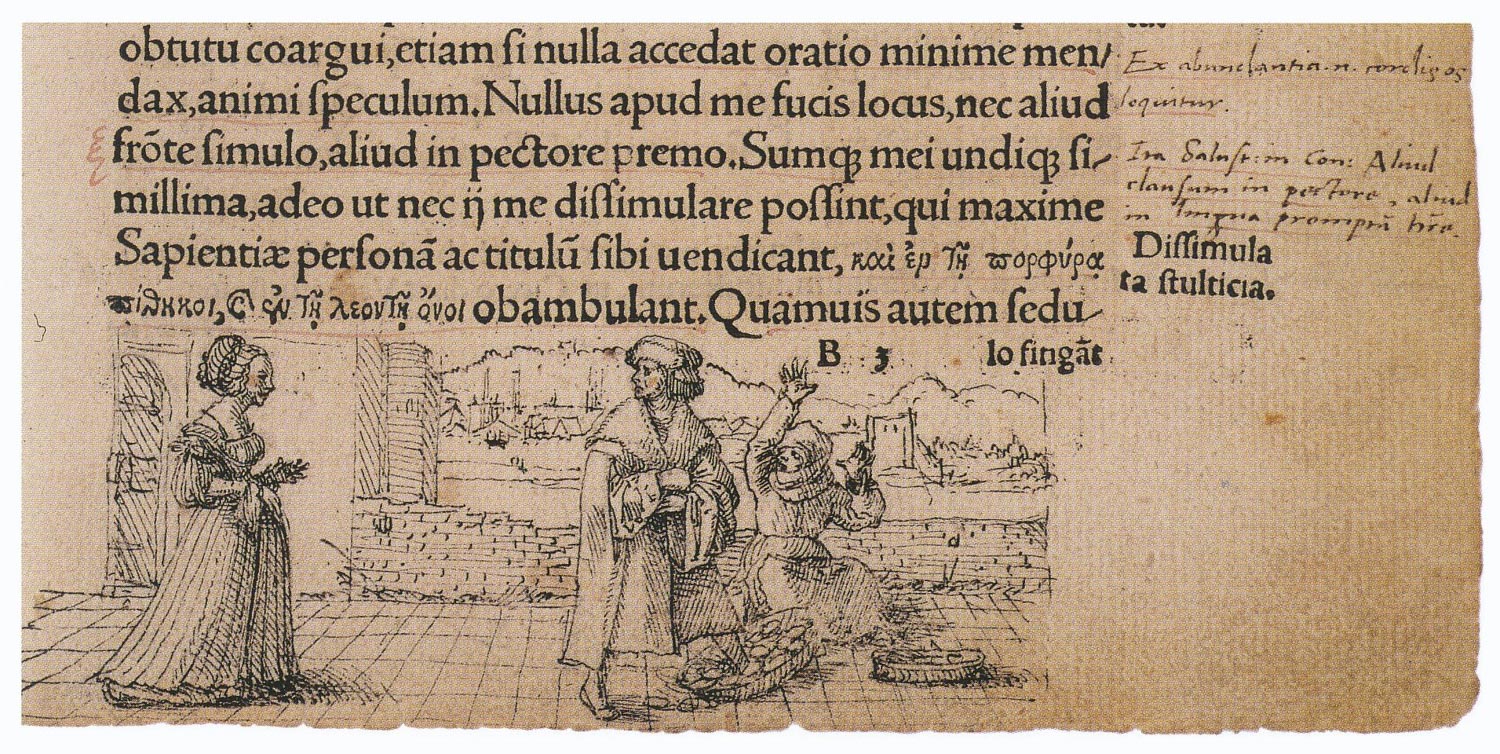 obtutu coargui,etiam ſi nulla accedat oratio minime men/
dax,animi ſpeculum.Nullus apud me fucis locus,nec aliud
frõte ſimulo,aliud in pectore premo.Sumqꝫ mei undiqꝫ ſi-
millima,adeo ut nec ij me diſſimulare poſſint,qui maxime
Sapientiæ perſonã ac titulũ ſibi uendicant, καὶ ἐν τῇ πορφύρᾳ
πίθηκοι, & ἐν τῇ λεοντῇ ὄνοι obambulant. Quamuis autem ſedu-
B 3 lo fingãt
Ex abundantia.n. cordis os
loquitur.
Ita Saluſt: in Con: Aliud
clauſum in pectore, aliud
in lingua
Diſſimula
ta ſtulticia.